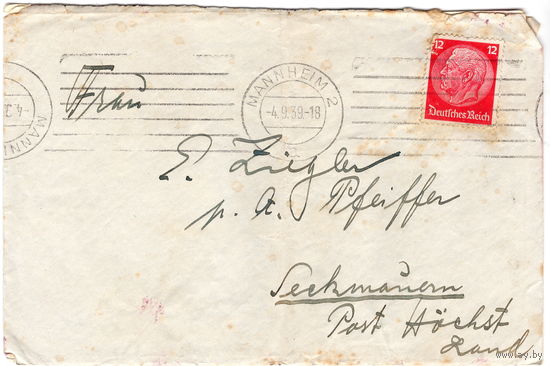 12 12
Deutsches Reich
MANNHEIM 2
-4.9.39-18
MANN
-4.9.3
Frau
E. Ziegler
p. A. Pfeiffer
Seckmauern
Post Höchst
Land
www.ay.by